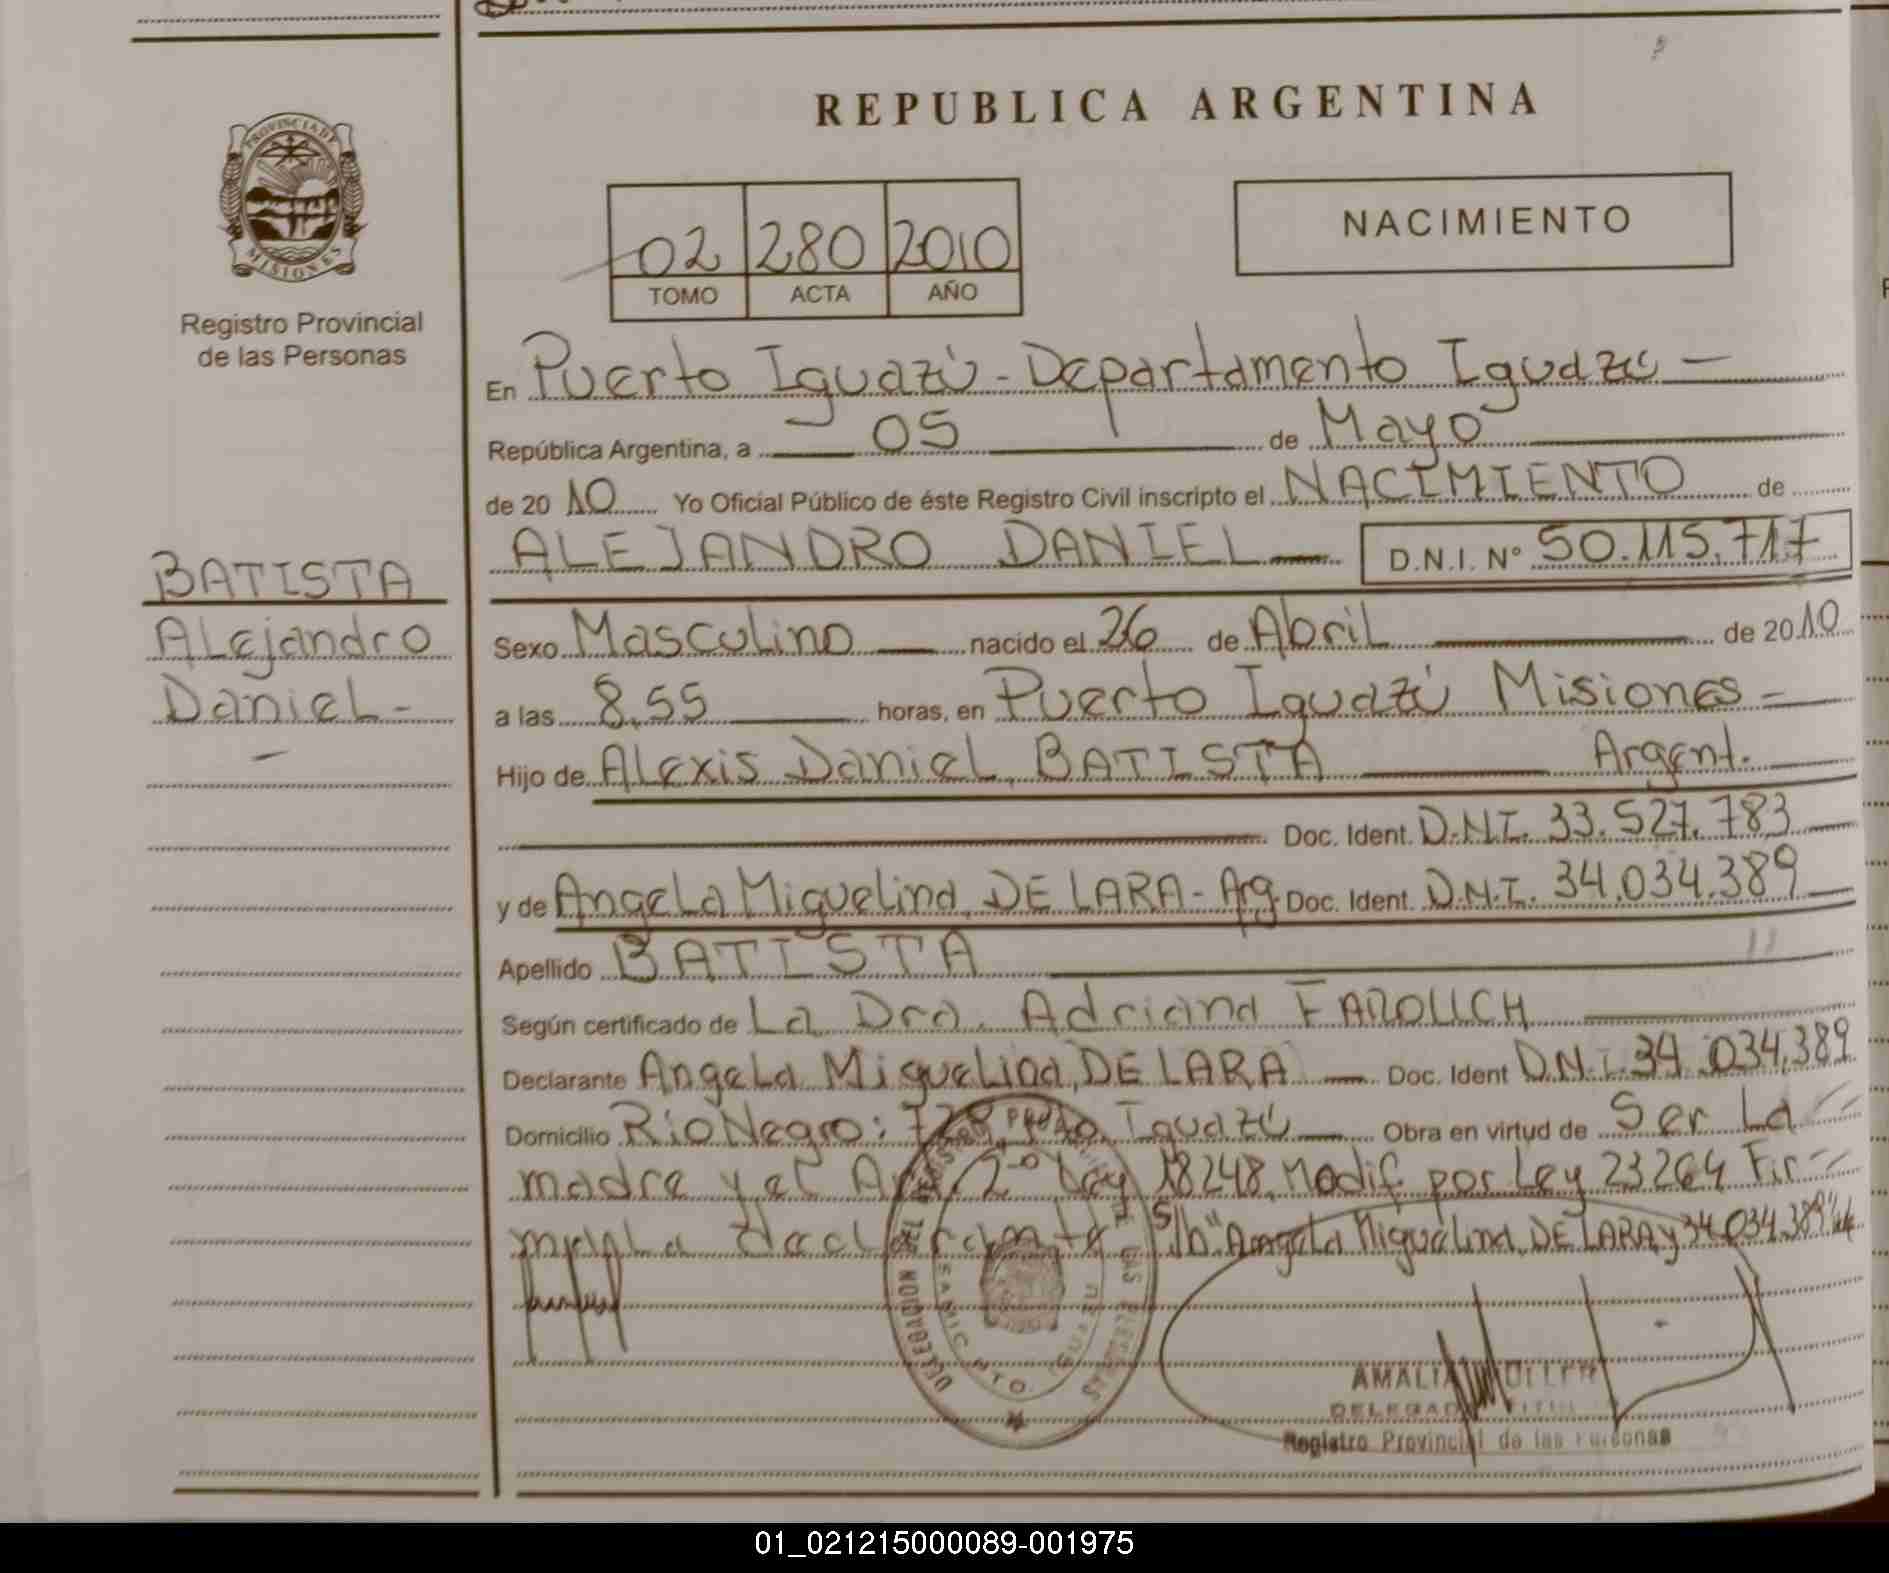 REPUBLICA ARGENTINA
PROVINCIA DE
MISIONES
Registro Provincial
de las Personas
02 280 2010
TOMO ACTA AÑO
NACIMIENTO
En Puerto Iguazú - Departamento Iguazú —
República Argentina, a 05 de Mayo
de 20 10 Yo Oficial Público de éste Registro Civil inscripto el NACIMIENTO de
ALEJANDRO DANIEL — D.N.I. N° 50.115.717
BATISTA
Alejandro
Daniel -
Sexo Masculino — nacido el 26 de Abril de 20 10
a las 8,55 horas, en Puerto Iguazú Misiones -
Hijo de Alexis Daniel, BATISTA — Argent.
Doc. Ident. D.N.I. 33.527.783
y de Angela Miguelina, DE LARA - Arg. Doc. Ident. D.N.I. 34.034.389
Apellido BATISTA
Según certificado de La Dra. Adriana FAROUCH
Declarante Angela Miguelina, DE LARA — Doc. Ident D.N.I. 34.034.389
Domicilio Rio Negro: Iguazú — Obra en virtud de Ser La
madre y el 2° Ley 18248, Modif por Ley 23264 Fir
ma La declarante S/b "Angela Miguelina, DE LARA y 34.034.389"
DELEGACION DEL REGISTRO DE LAS PERSONAS
AMALIA MULLER
DELEGADA TITULAR
Registro Provincial de las Personas
01_021215000089-001975